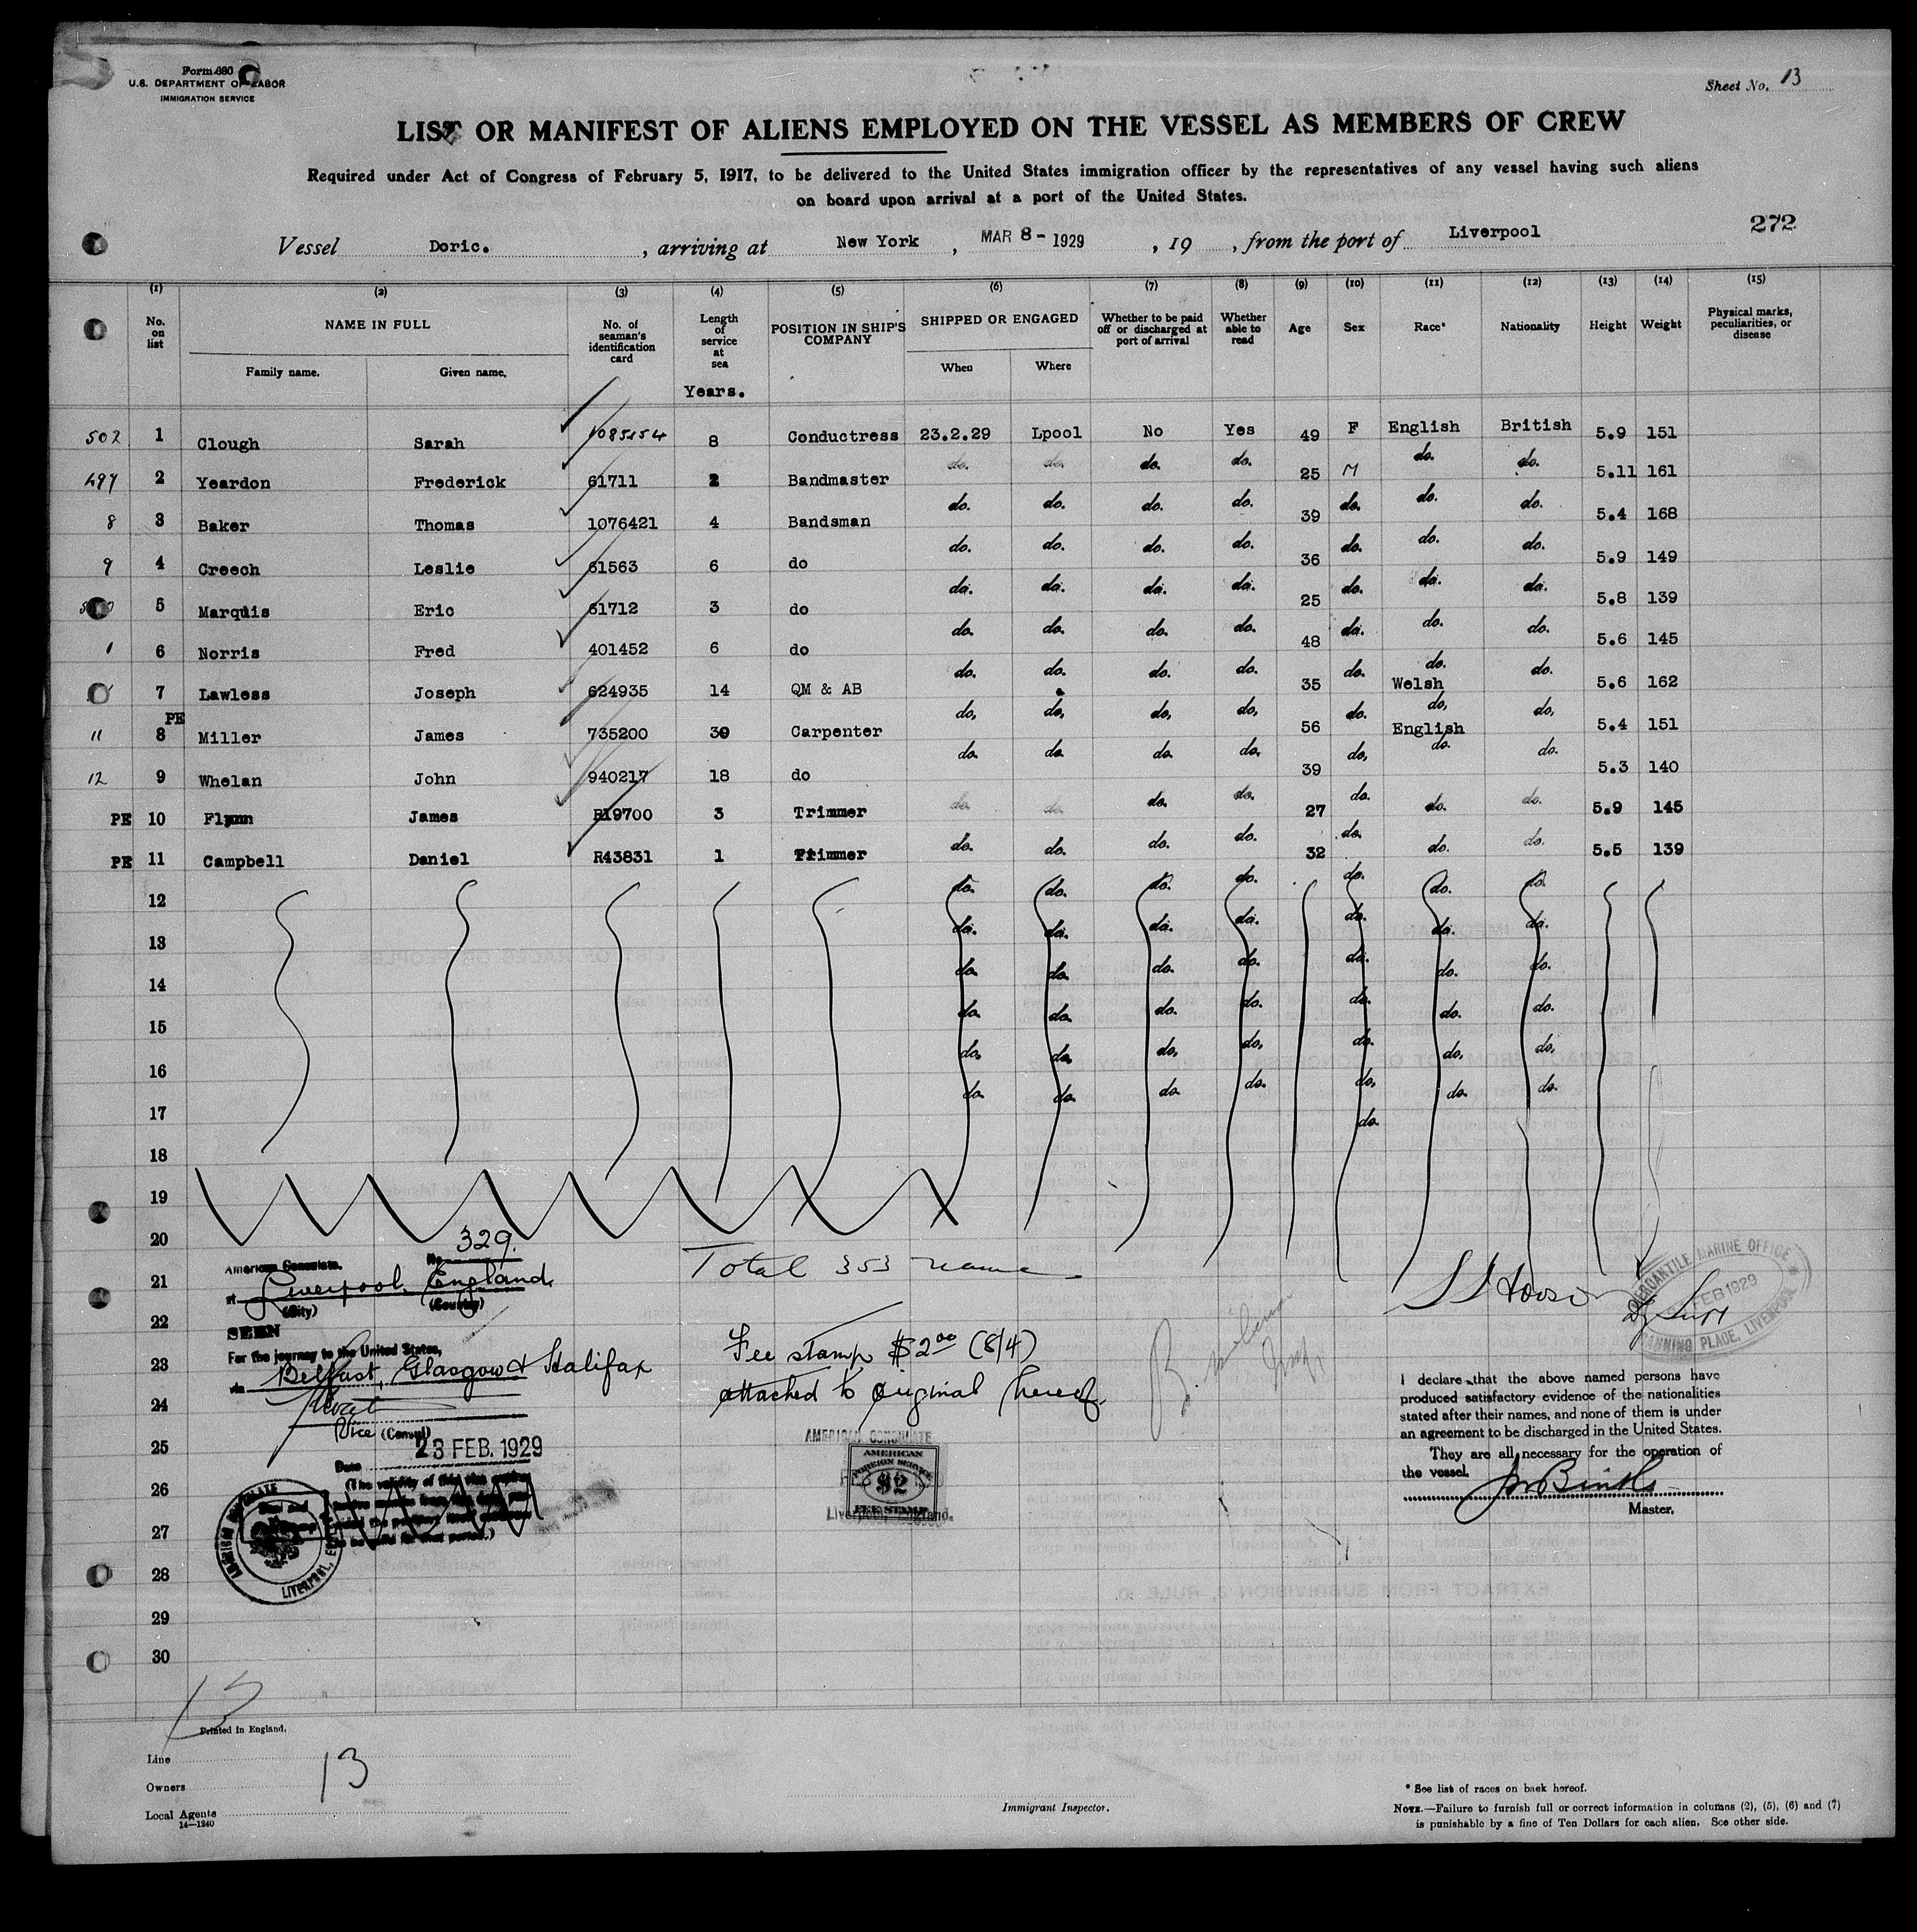 Form 680
U.S. DEPARTMENT OF LABOR
IMMIGRATION SERVICE
Sheet No. 13
LIST OR MANIFEST OF ALIENS EMPLOYED ON THE VESSEL AS MEMBERS OF CREW
Required under Act of Congress of February 5, 1917, to be delivered to the United States immigration officer by the representatives of any vessel having such aliens
on board upon arrival at a port of the United States.
272
Vessel Doric. , arriving at New York , MAR 8 - 1929 , 19 , from the port of Liverpool
(1) (2) (3) (4) (5) (6) (7) (8) (9) (10) (11) (12) (13) (14) (15)
No. on list NAME IN FULL Family name. Given name. No. of seaman's identification card Length of service at sea Years. POSITION IN SHIP'S COMPANY SHIPPED OR ENGAGED When Where Whether to be paid off or discharged at port of arrival Whether able to read Age Sex Race* Nationality Height Weight Physical marks, peculiarities, or disease
502 1 Clough Sarah 1085154 8 Conductress 23.2.29 Lpool No Yes 49 F English British 5.9 151
497 2 Yeardon Frederick 61711 2 Bandmaster do. do. do. do. 25 M do. do. 5.11 161
8 3 Baker Thomas 1076421 4 Bandsman do. do. do. do. 39 do. do. do. 5.4 168
9 4 Creech Leslie 61563 6 do do. do. do. do. 36 do. do. do. 5.9 149
5 Marquis Eric 61712 3 do do. do. do. do. 25 do. do. do. 5.8 139
1 6 Norris Fred 401452 6 do do. do. do. do. 48 do. do. do. 5.6 145
7 Lawless Joseph 624935 14 QM & AB do. do. do. do. 35 do. do. Welsh do. 5.6 162
PE
11 8 Miller James 735200 39 Carpenter do. do. do. do. 56 do. do. English do. 5.4 151
12 9 Whelan John 940217 18 do do. do. do. do. 39 do. do. do. 5.3 140
PE 10 Flynn James R19700 3 Trimmer do. do. do. do. 27 do. do. do. 5.9 145
PE 11 Campbell Daniel R43831 1 Trimmer do. do. do. do. 32 do. do. do. 5.5 139
12 do. do. do. do. do. do. do.
13 do. do. do. do. do. do. do.
14 do. do. do. do. do. do. do.
15 do. do. do. do. do. do. do.
16 do. do. do. do. do. do. do.
17 do. do. do. do. do. do. do.
do.
18
19
20
21
22
23
24
25
26
27
28
29
30
No 329.
American Consulate.
at Liverpool, England.
(City) (Country)
SEEN
For the journey to the United States,
via Belfast, Glasgow & Halifax
Vice (Consul)
Date 23 FEB. 1929
(The validity of this visa
AMERICAN CONSULATE
LIVERPOOL,
Total 353 names
Fee stamp $2 00 (8/4)
attached to original hereof.
AMERICAN CONSULATE
AMERICAN
FOREIGN SERVICE
$2
FEE STAMP
Liverpool, England.
MERCANTILE MARINE OFFICE
FEB 1929
CANNING PLACE, LIVERPOOL
I declare that the above named persons have
produced satisfactory evidence of the nationalities
stated after their names, and none of them is under
an agreement to be discharged in the United States.
They are all necessary for the operation of
the vessel.
Master.
13
Printed in England.
Line
13
Owners
Local Agents
14—1240
Immigrant Inspector.
* See list of races on back hereof.
NOTE.—Failure to furnish full or correct information in columns (2), (5), (6) and (7)
is punishable by a fine of Ten Dollars for each alien. See other side.